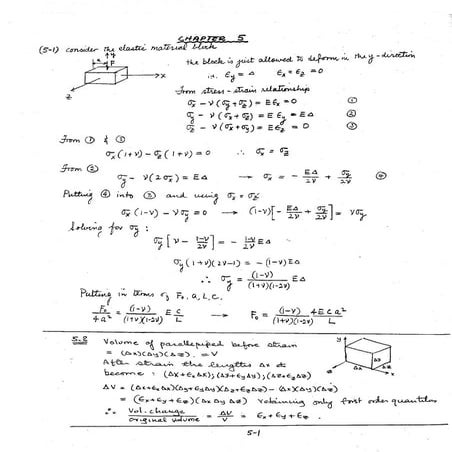 CHAPTER 5
(5-1) Consider the elastic material block
the block is just allowed to deform in the y-direction
y
F
x
z
i.e. εy = Δ εx = εz = 0
From stress-strain relationship
σx - ν(σy + σz) = E εx = 0 ①
σy - ν(σx + σz) = E εy = EΔ ②
σz - ν(σx + σy) = E εz = 0 ③
From ① & ③
σx(1+ν) - σz(1+ν) = 0 ∴ σx = σz
From ②
σy - ν(2σx) = EΔ → σx = - EΔ/2ν + σy/2ν ④
Putting ④ into ③ and using σx = σz
σx(1-ν) - νσy = 0 → (1-ν)[- EΔ/2ν + σy/2ν] = νσy
Solving for σy :
σy [ν - (1-ν)/2ν] = - (1-ν)/2ν EΔ
σy (1+ν)(2ν-1) = -(1-ν)EΔ
∴ σy = (1-ν)/((1+ν)(1-2ν)) EΔ
Putting in terms of F₀, a, L, C.
F₀/4a² = (1-ν)/((1+ν)(1-2ν)) E C/L → F₀ = (1-ν)/((1+ν)(1-2ν)) 4ECa²/L
5-2 Volume of parallepiped before strain
= (Δx)(Δy)(Δz) = V
After strain the lengths Δx etc
become : (Δx+εxΔx); (Δy+εyΔy); (Δz+εzΔz)
y
x
z
Δx
Δy
Δz
ΔV = (Δx+εxΔx)(Δy+εyΔy)(Δz+εzΔz) - (Δx)(Δy)(Δz)
= (εx+εy+εz)(Δx Δy Δz) retaining only first order quantities
∴ Vol. change/original volume = ΔV/V = εx + εy + εz .
5-1